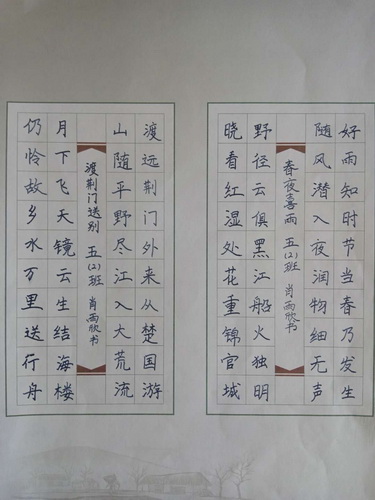 好雨知时节当春乃发生
随风潜入夜润物细无声
春夜喜雨 五(2)班 肖雨欣书
野径云俱黑江船火独明
晓看红湿处花重锦官城
渡远荆门外来从楚国游
山随平野尽江入大荒流
渡荆门送别 五(2)班 肖雨欣书
月下飞天镜云生结海楼
仍怜故乡水万里送行舟